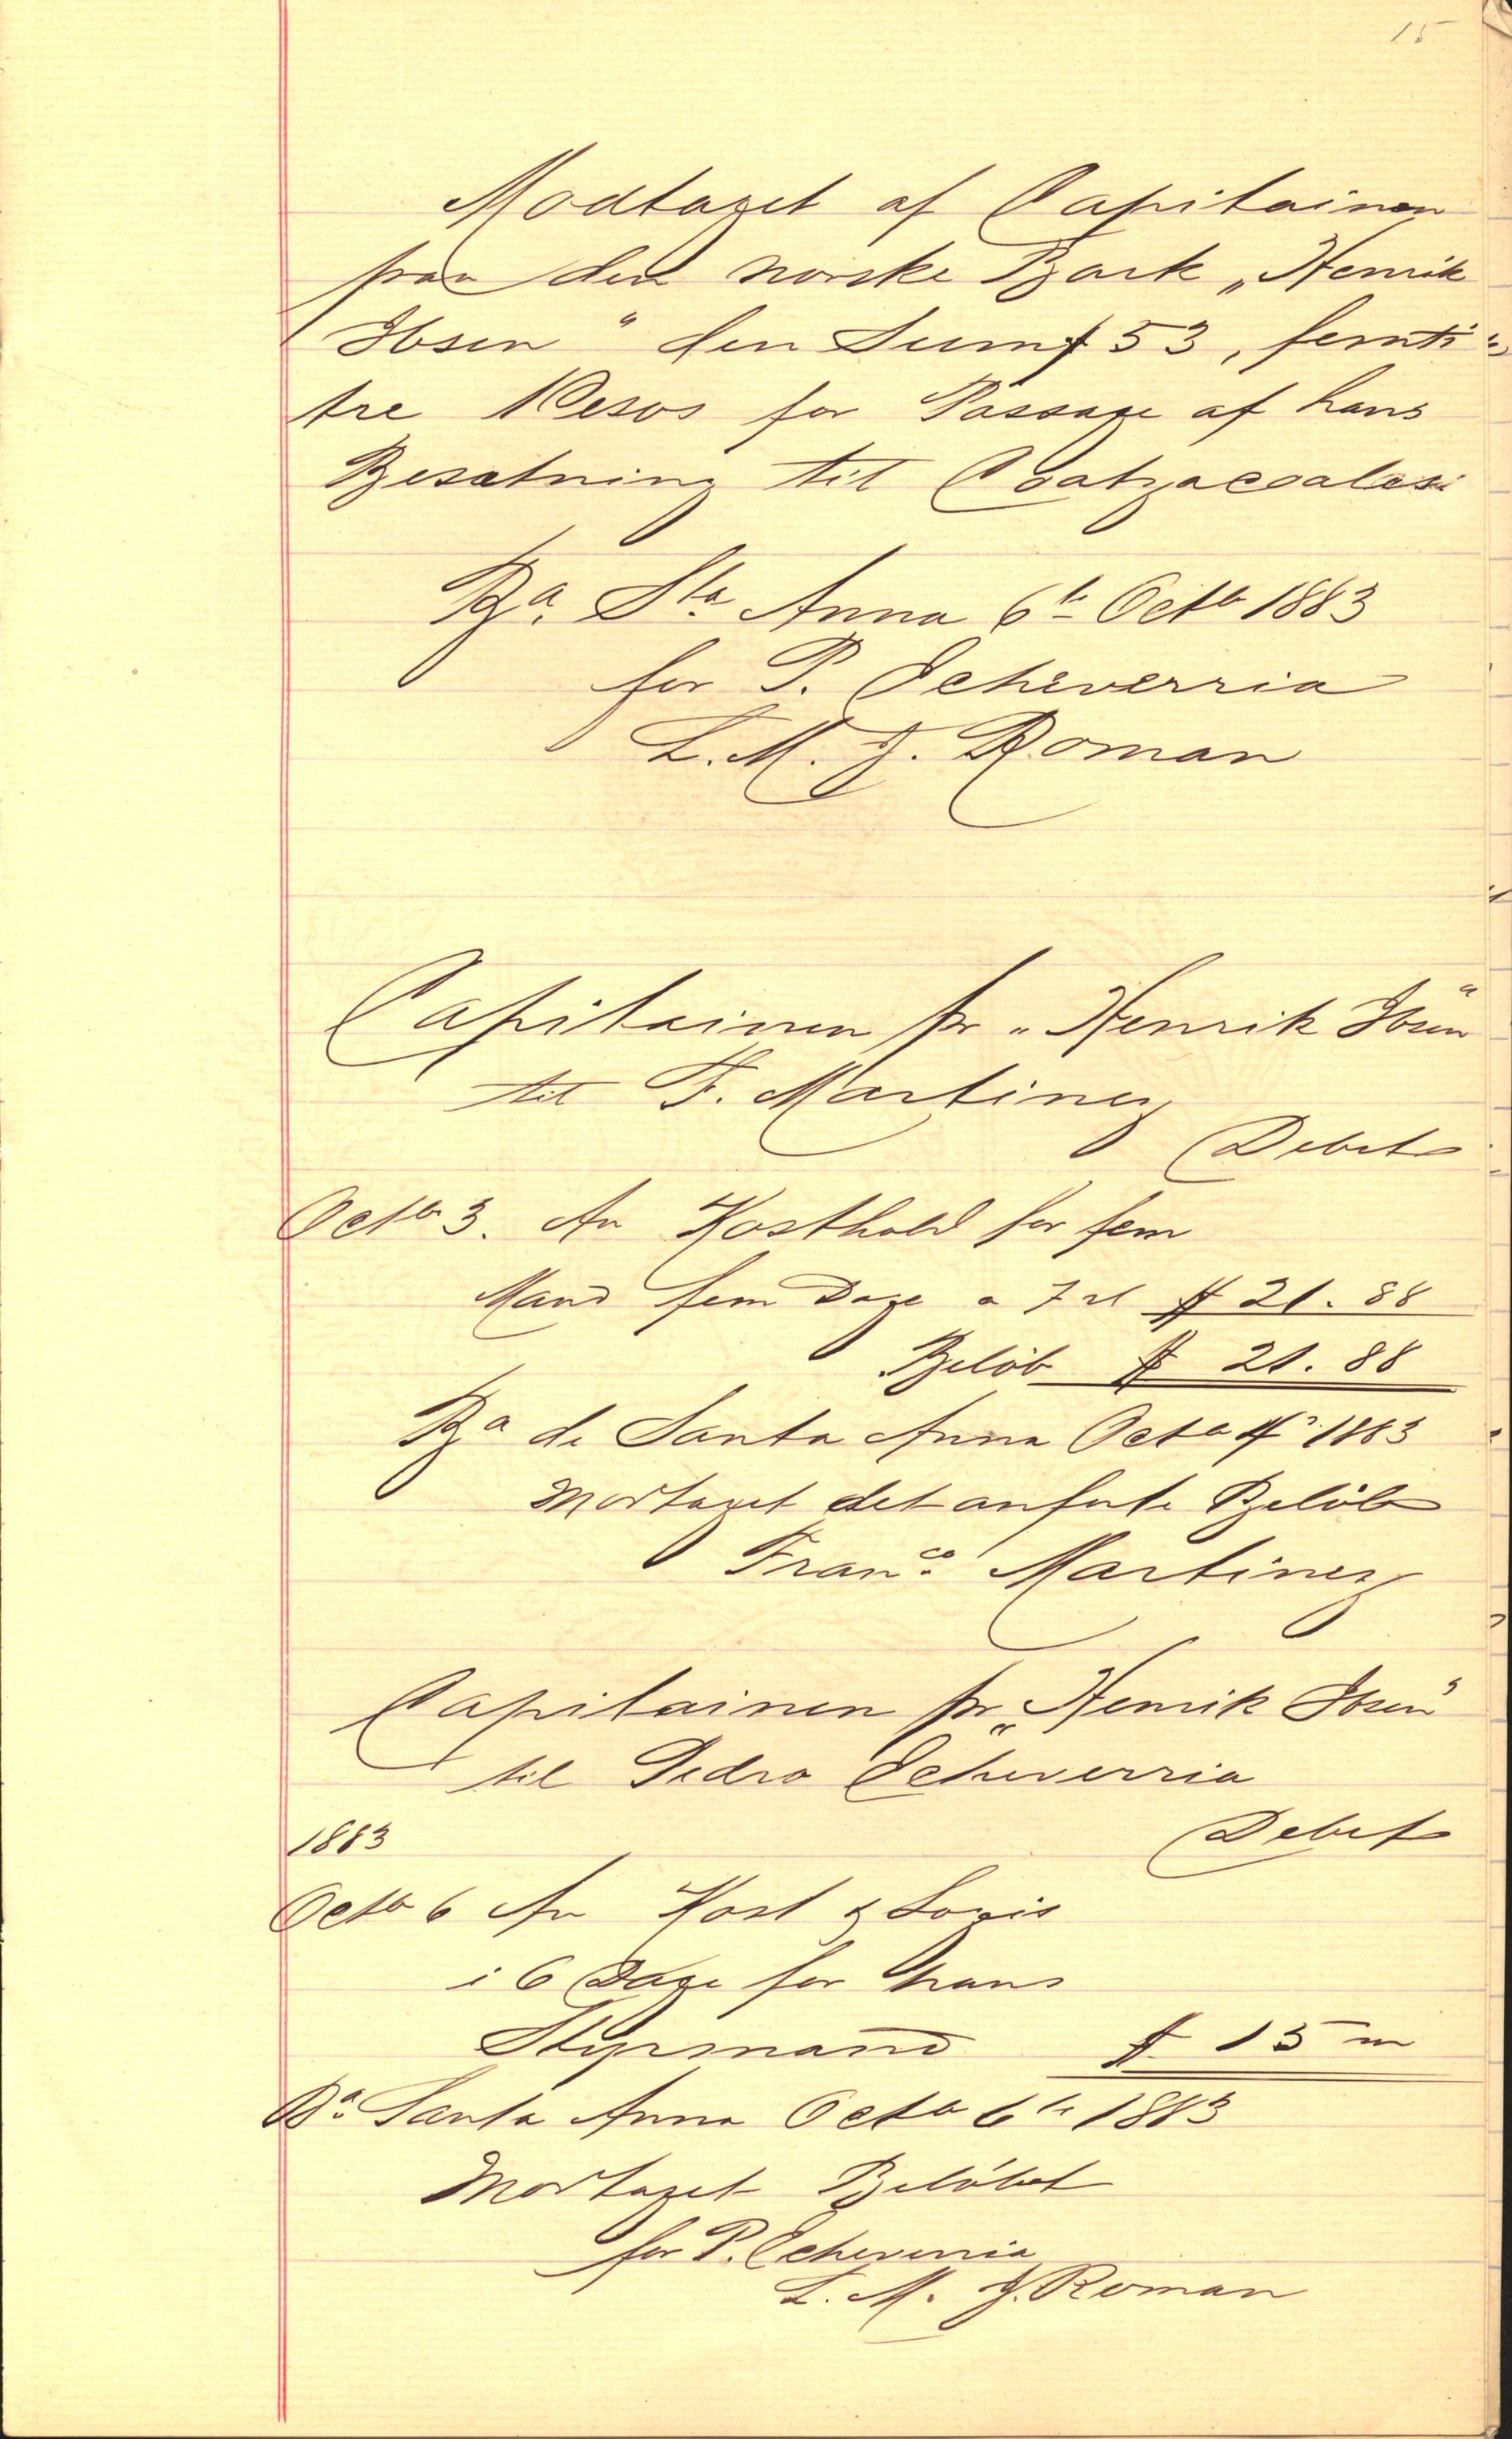 15
Modtaget af Capitainen
fraa den norske Bark „Henrik
Ibsen“ den Sum $ 53, femti
tre Pesos for Passage af hans
Besætning til Coatzacoalcos
Ba. Sta. Anna 6te Octb 1883
for P. Echeverria
L. M. J. Roman
Capitainen pr „Henrik Ibsen“
til F. Martinez
Debet
Octb 3. An Kosthold for fem
Mand fem Dage a 7 rl $ 21.88
Belöb $ 21.88
Ba de Santa Anna Octb 4 1883
Modtaget det anförte Belöb
Franco. Martinez
Capitainen pr „Henrik Ibsen“
til Pedro Echeverria
Debet
1883
Octb 6 An Kost & Logis
i 6 Dage for hans
Styrmand $ 15
Ba. Santa Anna Octb 6te 1883
Modtaget Belöbet
for P. Echeverria
L. M. J. Roman